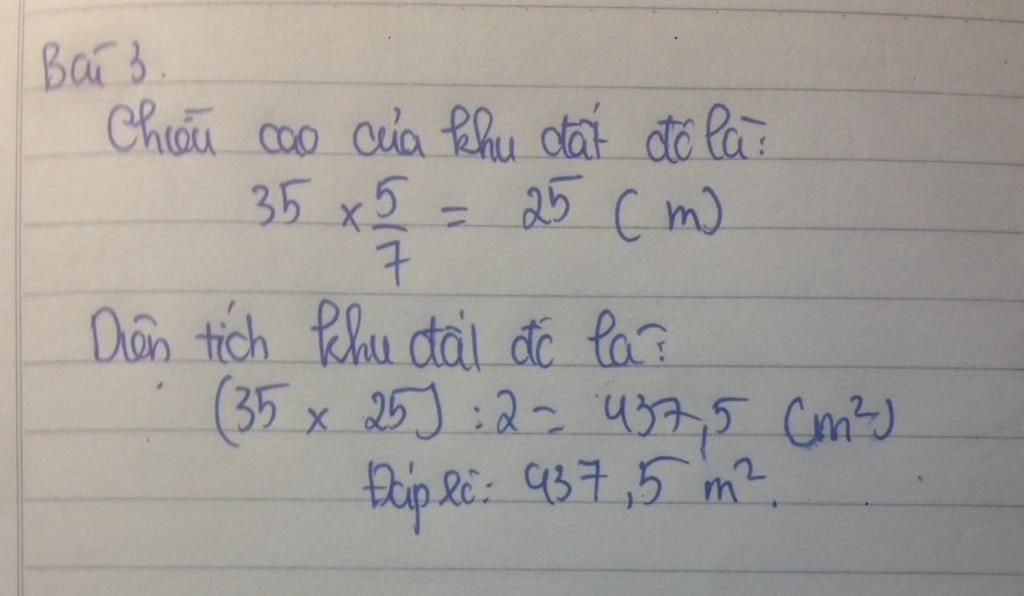 Bài 3.
Chiều cao của khu đất đó là:
35 × 5/7 = 25 (m)
Diện tích khu đất đó là:
(35 × 25) : 2 = 437,5 (m²)
Đáp số: 437,5 m².